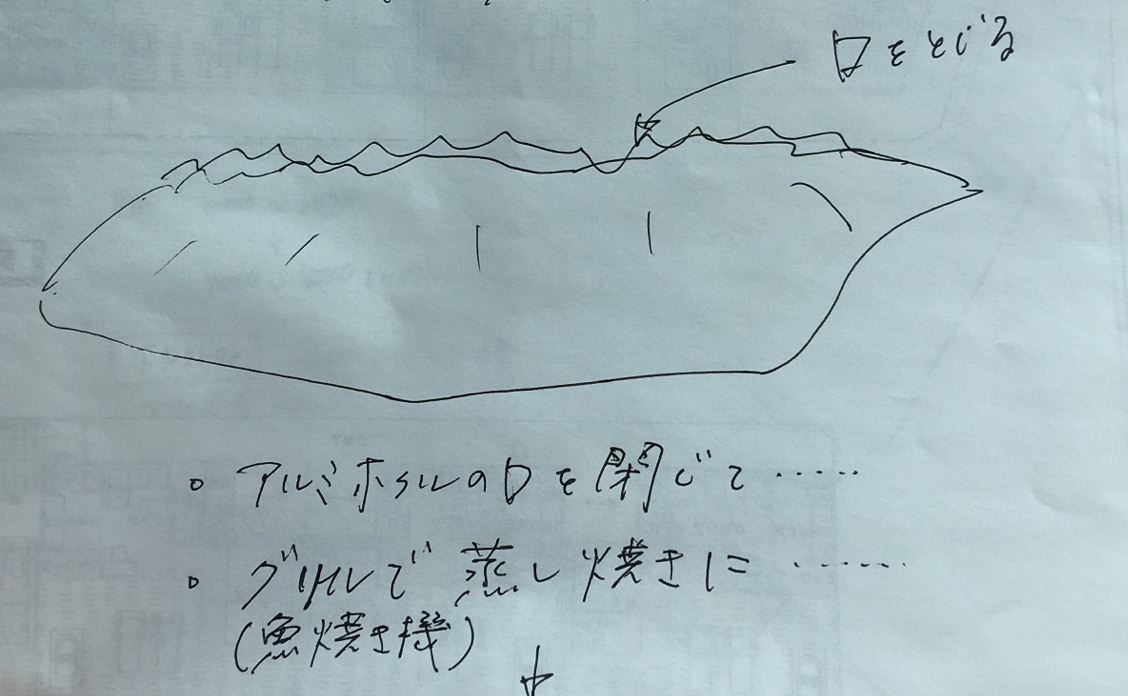 口をとじる
。アルミホイルの口を閉じて‥‥‥
。グリルで蒸し焼きに‥‥‥
(魚焼き機)